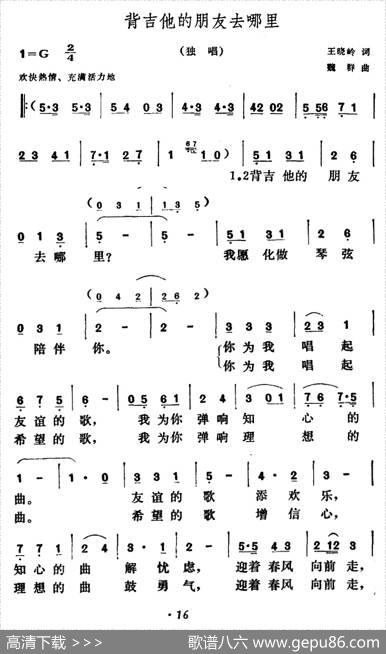 背吉他的朋友去哪里
1=G 2/4 （独唱） 王晓岭 词
欢快热情、充满活力地 魏群 曲
‖:(5·3 5·3 | 5 4 0 3 | 4·3 4·3 | 42 02 | 5 56 7 1 |
2 3 4 1 | 7·1 2 7 | 1 67 1 0) | 51 31 | 2 6 |
1.2背吉 他的 朋友
(0 3 1 | 1 3 5)
0 1 3 | 5 - | 5 - | 51 31 | 2 6 |
去哪 里? 我愿 化做 琴弦
(0 4 2 | 2 6 2)
0 3 1 | 2 - | 2 - | 3 3 3 | 2 3 1 |
陪伴 你。 你为我 唱起
你为我 唱起
6 7 5 | 6 - | 05 61 | 2 4 | 3 01 | 76 7·5 |
友谊的 歌， 我为你 弹响 知 心的
希望的 歌， 我为你 弹响 理 想的
1 - | 1·0 | 3 3 1 | 5 - | 4·2 | 3 - |
曲。 友谊的 歌 添欢 乐，
曲。 希望的 歌 增信 心，
7 7 1 | 2 4 | 3·1 | 2 - | 5·5 4 3 | 2 12 3 |
知心的 曲 解忧 虑， 迎着春风 向前走，
理想的 曲 鼓勇 气， 迎着春风 向前走，
· 16
高清下载 >>>> 歌谱八六 www.gepu86.com